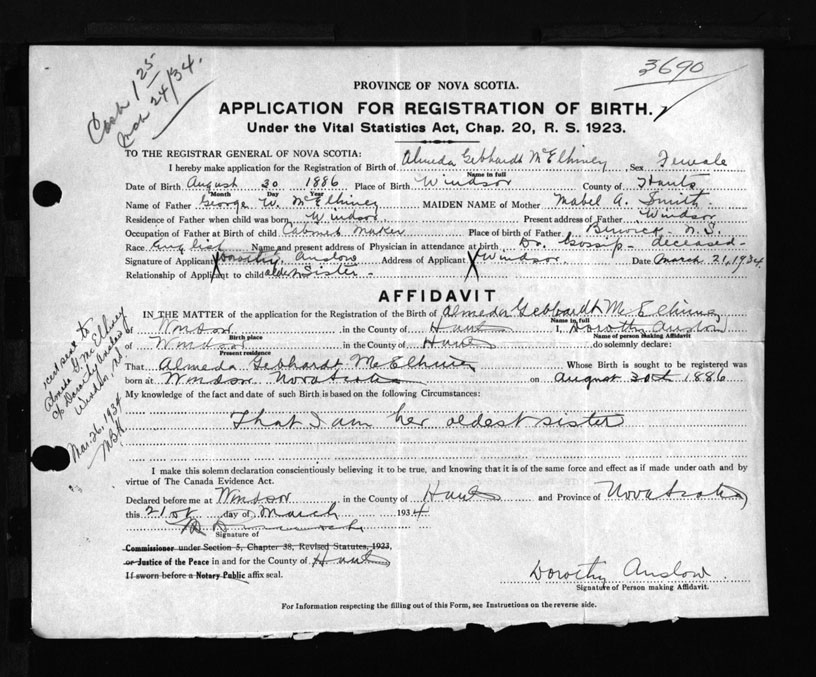 Cash 1 25
Mar 24/34.
3690
PROVINCE OF NOVA SCOTIA.
APPLICATION FOR REGISTRATION OF BIRTH.
Under the Vital Statistics Act, Chap. 20, R. S. 1923.
TO THE REGISTRAR GENERAL OF NOVA SCOTIA:
I hereby make application for the Registration of Birth of Almeda Gebhardt McElhiney Sex Female
Name in full
Date of Birth August 30 1886 Place of Birth Windsor County of Hants
Month Day Year
Name of Father George W. McElhiney MAIDEN NAME of Mother Mabel A. Smith
Residence of Father when child was born Windsor Present address of Father Windsor
Occupation of Father at Birth of child Cabinet Maker Place of birth of Father Berwick N. S.
Race English Name and present address of Physician in attendance at birth Dr. Gossip - deceased -
Signature of Applicant X Dorothy Anslow Address of Applicant X Windsor Date March 21, 1934
Relationship of Applicant to child oldest Sister -
AFFIDAVIT
IN THE MATTER of the application for the Registration of the Birth of Almeda Gebhardt McElhiney
Name in full
of Windsor in the County of Hants I, Dorothy Anslow
Birth place Name of person making Affidavit
of Windsor in the County of Hants do solemnly declare:
Present residence
That Almeda Gebhardt McElhiney Whose Birth is sought to be registered was
born at Windsor Nova Scotia on August 30th 1886
My knowledge of the fact and date of such Birth is based on the following Circumstances:
That I am her oldest sister
I make this solemn declaration conscientiously believing it to be true, and knowing that it is of the same force and effect as if made under oath and by
virtue of The Canada Evidence Act.
Declared before me at Windsor in the County of Hants and Province of Nova Scotia
this 21st day of March 1934
Signature of
Commissioner under Section 5, Chapter 38, Revised Statutes, 1923,
or Justice of the Peace in and for the County of Hants
If sworn before a Notary Public affix seal.
Dorothy Anslow
Signature of Person making Affidavit.
For Information respecting the filling out of this Form, see Instructions on the reverse side.
sent to
Almeda G. McElhiney
c/o Dorothy Anslow
Windsor, N.S.
Mar. 26, 1934